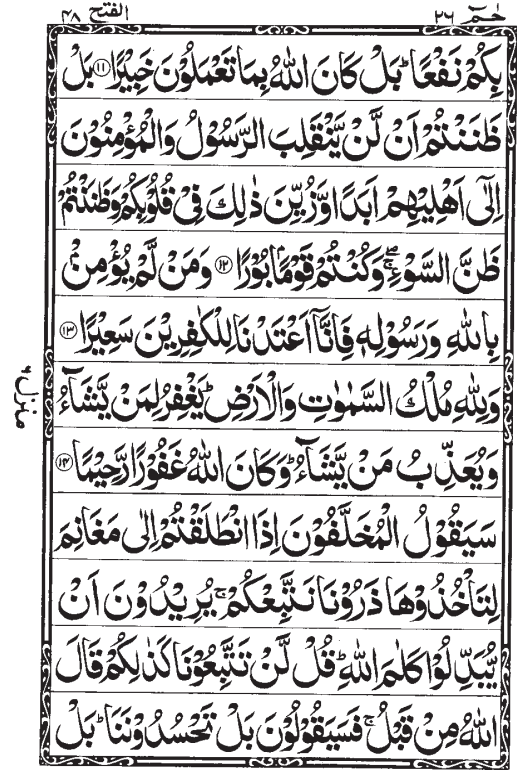 حٰمٓ ٢٦
الفتح ٤٨
بِكُمْ نَفْعًا ؕ بَلْ كَانَ اللّٰهُ بِمَا تَعْمَلُوْنَ خَبِيْرًا ﴿۱۱﴾ بَلْ
ظَنَنْتُمْ اَنْ لَّنْ يَّنْقَلِبَ الرَّسُوْلُ وَالْمُؤْمِنُوْنَ
اِلٰٓى اَهْلِيْهِمْ اَبَدًا وَّزُيِّنَ ذٰلِكَ فِيْ قُلُوْبِكُمْ وَظَنَنْتُمْ
ظَنَّ السَّوْءِ ۖۚ وَكُنْتُمْ قَوْمًۢا بُوْرًا ﴿۱۲﴾ وَمَنْ لَّمْ يُؤْمِنْۢ
بِاللّٰهِ وَرَسُوْلِهٖ فَاِنَّاۤ اَعْتَدْنَا لِلْكٰفِرِيْنَ سَعِيْرًا ﴿۱۳﴾
وَلِلّٰهِ مُلْكُ السَّمٰوٰتِ وَالْاَرْضِ ؕ يَغْفِرُ لِمَنْ يَّشَآءُ
وَيُعَذِّبُ مَنْ يَّشَآءُ ؕ وَكَانَ اللّٰهُ غَفُوْرًا رَّحِيْمًا ﴿۱۴﴾
سَيَقُوْلُ الْمُخَلَّفُوْنَ اِذَا انْطَلَقْتُمْ اِلٰى مَغَانِمَ
لِتَاْخُذُوْهَا ذَرُوْنَا نَتَّبِعْكُمْ ۚ يُرِيْدُوْنَ اَنْ
يُّبَدِّلُوْا كَلٰمَ اللّٰهِ ؕ قُلْ لَّنْ تَتَّبِعُوْنَا كَذٰلِكُمْ قَالَ
اللّٰهُ مِنْ قَبْلُ ۚ فَسَيَقُوْلُوْنَ بَلْ تَحْسُدُوْنَنَا ؕ بَلْ
منزل ٦